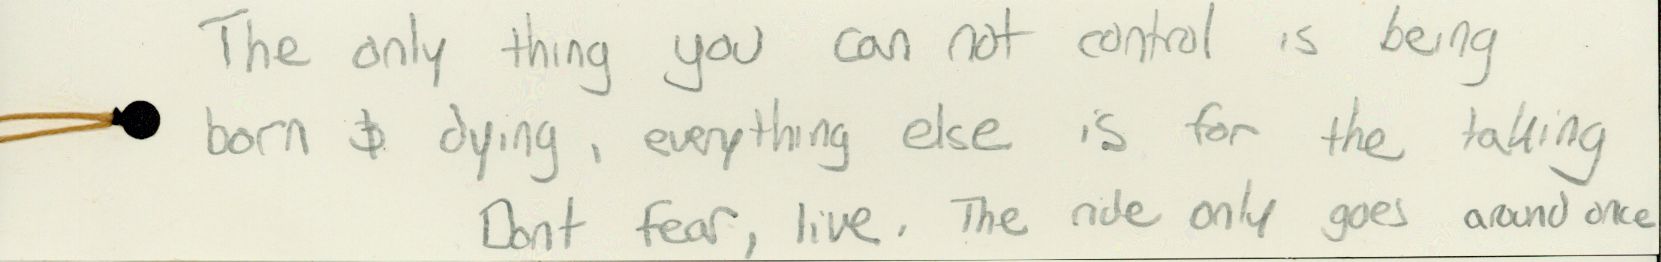 The only thing you can not control is being
born & dying, everything else is for the taking
Dont fear, live. The ride only goes around once